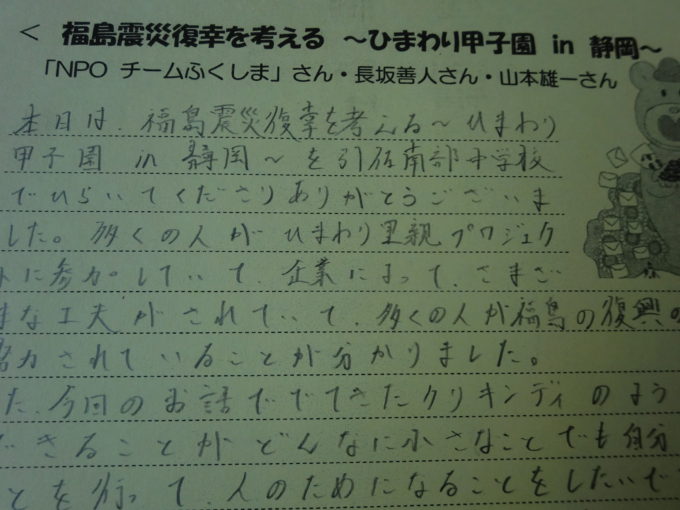 < 福島震災復幸を考える ～ひまわり甲子園 in 静岡～
「NPO チームふくしま」さん・長坂善人さん・山本雄一さん
本日は、福島震災復幸を考える～ひまわり
甲子園 in 静岡～を引佐南部中学校
でひらいてくださりありがとうございま
した。多くの人がひまわり里親プロジェク
トに参加していて、企業によって、さまざ
まな工夫がされていて、多くの人が福島の復興の
努力されていることが分かりました。
た、今回のお話ででてきたクリキンディのよう
できることがどんなに小さなことでも自分
ことを行って、人のためになることをしたいで